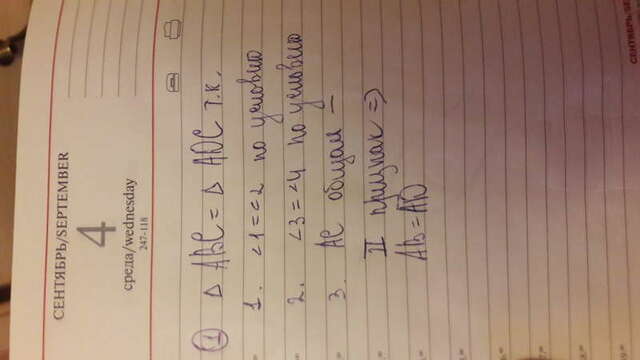 СЕНТЯБРЬ/SEPTEMBER
4
среда/wednesday
247-118
1 Δ ABC = Δ ADC т.к.
1. ∠1=∠2 по условию
2. ∠3=∠4 по условию
3. AC общая —
II признак =>
AB = AD
СЕНТЯБРЬ/SE